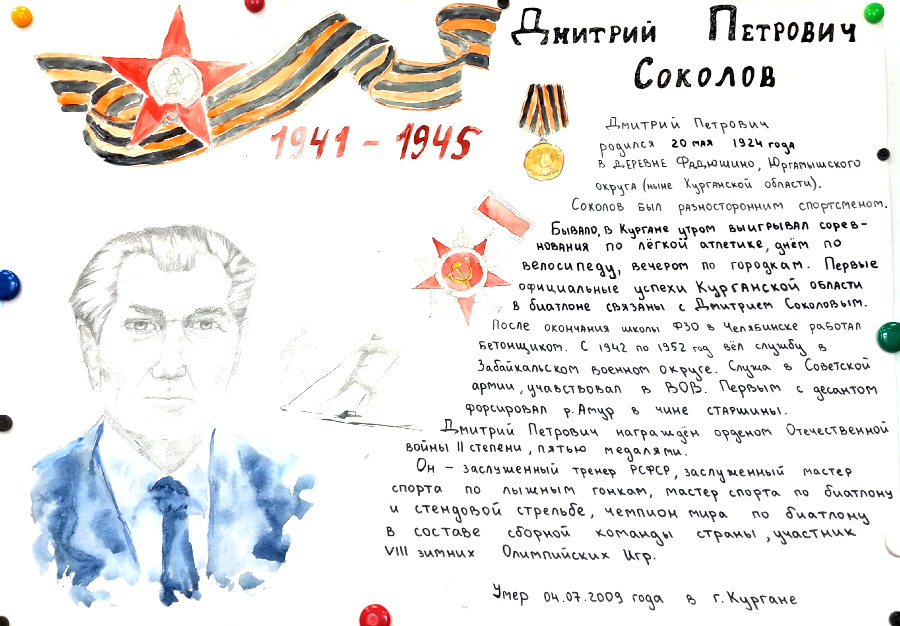 Дмитрий Петрович
Соколов
1941 - 1945
Дмитрий Петрович
родился 20 мая 1924 года
в деревне Фадюшино, Юргамышского
округа (ныне Курганской области).
Соколов был разносторонним спортсменом.
Бывало, в Кургане утром выигрывал сорев-
нования по лёгкой атлетике, днём по
велосипеду, вечером по городкам. Первые
официальные успехи Курганской области
в биатлоне связаны с Дмитрием Соколовым.
После окончания школы ФЗО в Челябинске работал
бетонщиком. С 1942 по 1952 год вёл службу в
Забайкальском военном округе. Служа в Советской
армии, учавствовал в ВОВ. Первым с десантом
форсировал р. Амур в чине старшины.
Дмитрий Петрович награждён орденом Отечественной
войны II степени, пятью медалями.
Он - заслуженный тренер РСФСР, заслуженный мастер
спорта по лыжным гонкам, мастер спорта по биатлону
и стендовой стрельбе, чемпион мира по биатлону
в составе сборной команды страны, участник
VIII зимних Олимпийских Игр.
Умер 04.07.2009 года в г. Кургане